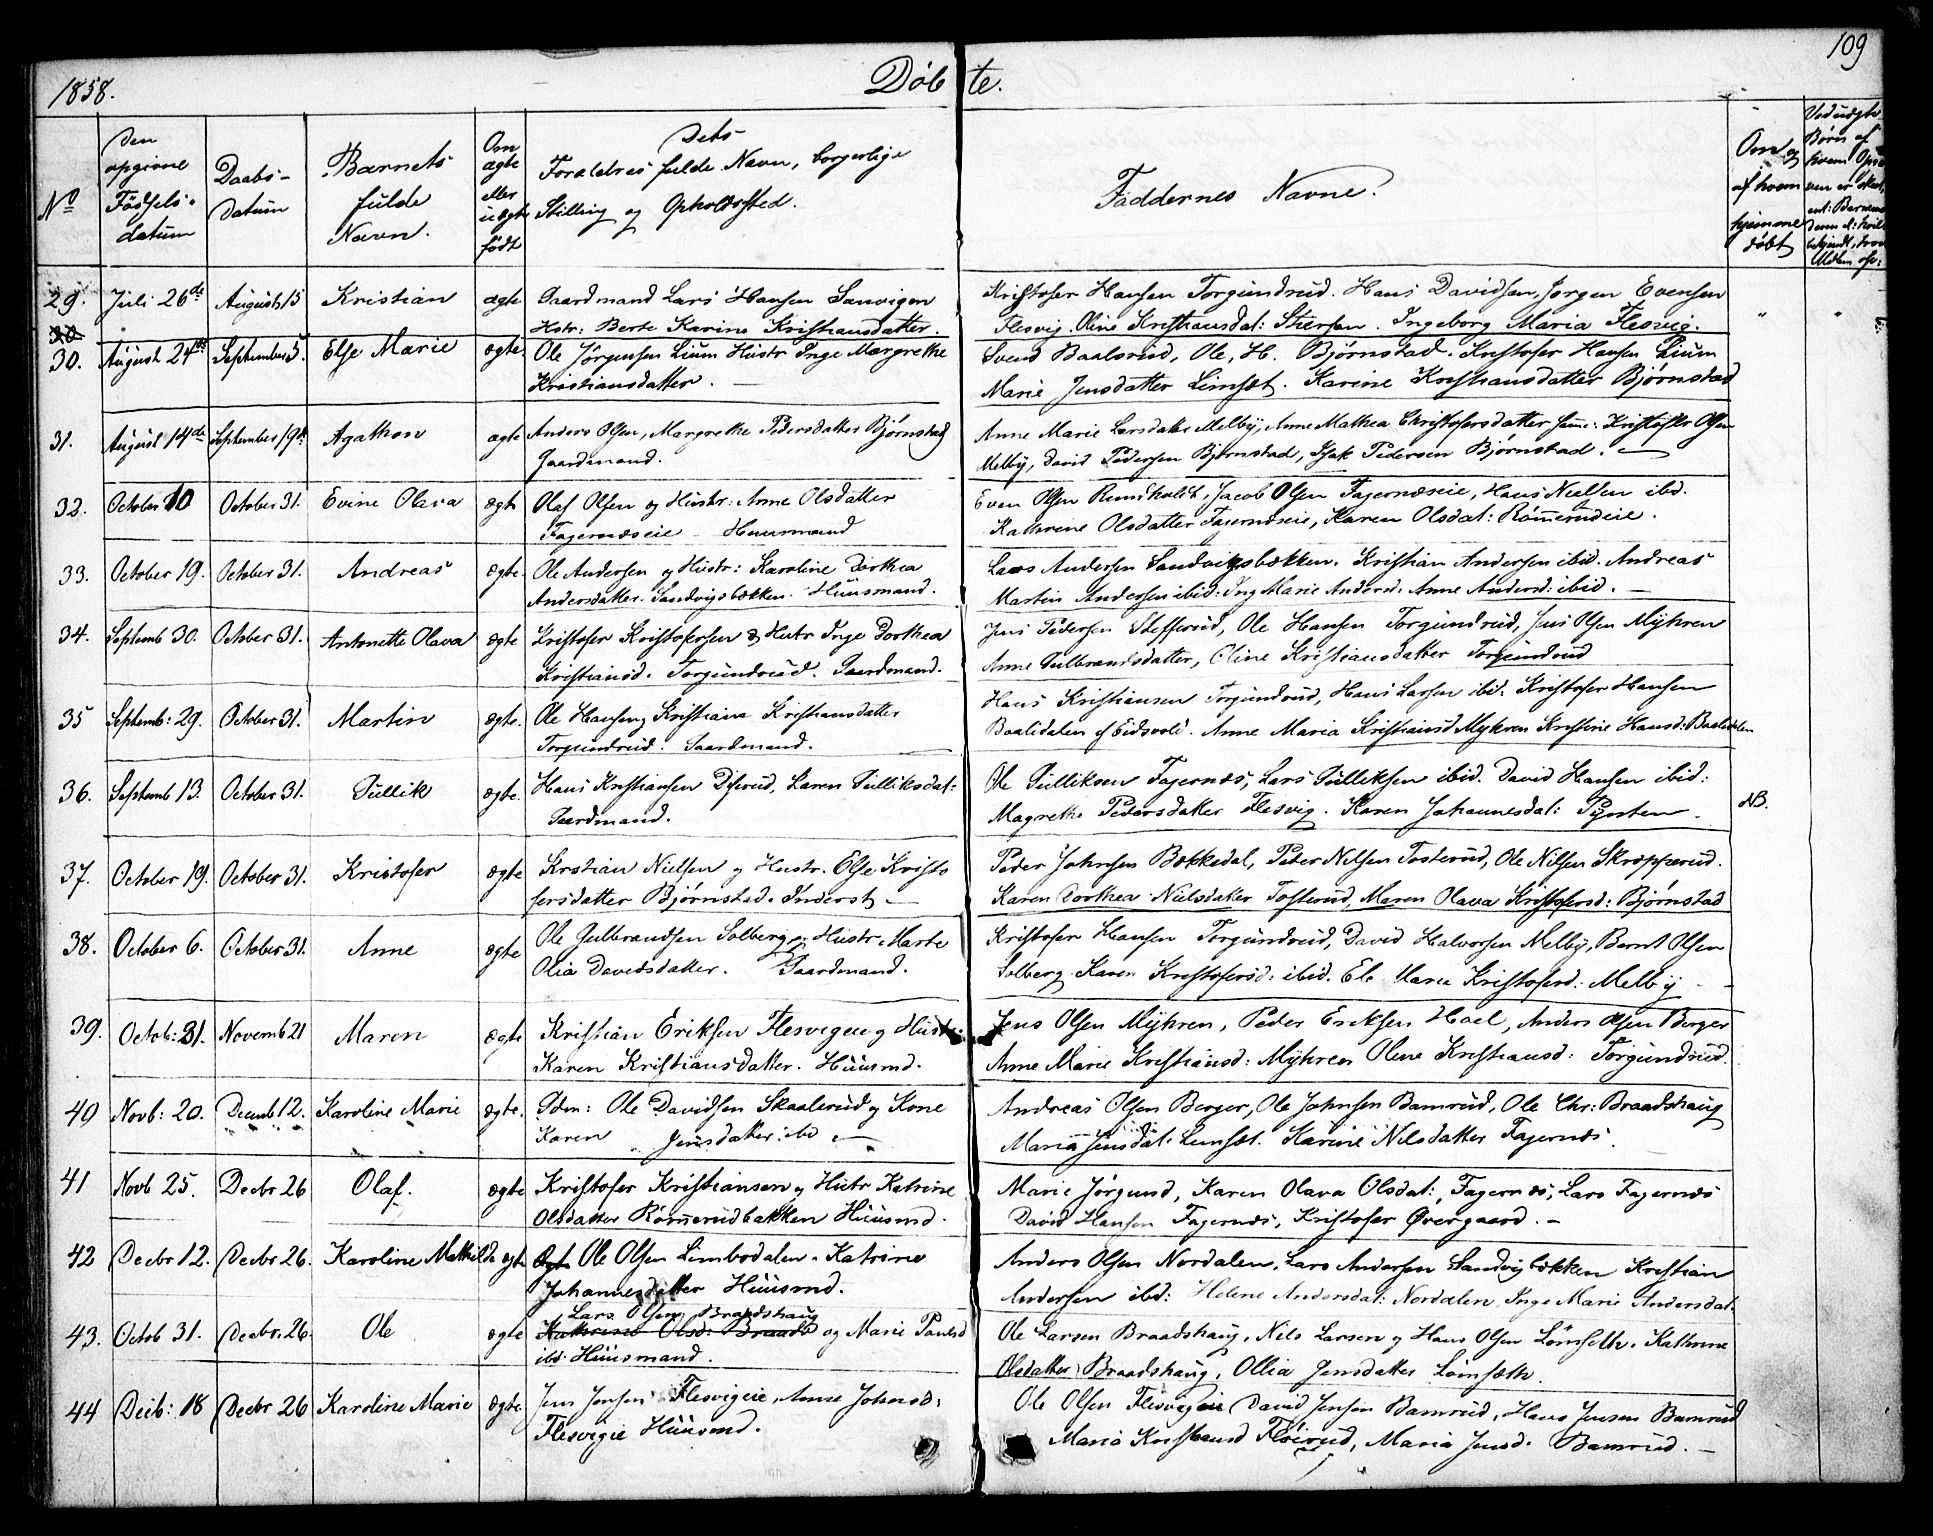 1858.
Döbte.
109
No
Den opgivne Födsels-datum
Daabs-Datum
Barnets fulde Navn.
Om ægte eller uægte födt
Dets Forældres fulde Navn, borgerlige Stilling og Opholdssted.
Faddernes Navne.
Om og af hvem hjemme döbt
29. Juli 26de August 15 Kristian ægte Gaardmand Lars Hansen Sanvigen Kristofer Hansen Torgundrud. Hans Davidsen, Jörgen Evensen
Hstr: Berte Karine Kristiansdatter. Flesvig. Oline Kristiansdat: Stensen. Ingeborg Maria Flesvig.
30. August 24de September 5. Else Marie ægte. Ole Jörgensen Lium Hustr Inge Margrethe Svend Baalsrud, Ole, H. Björnstad. Kristofer Hansen Lium
Kristiansdatter. Marie Jensdatter Limsæt. Karine Kristiansdatter Björnstad
31. August 14de September 19de Agathon ægte Anders Olsen, Margrethe Pedersdatter Björnstad Anne Marie Larsdatter Melby, Anne Mathea Christofersdatter Kristofer Olsen
Gaardmand. Melby, David Pedersen Björnstad, Isak Pedersen Björnstad.
32. October 10 October 31. Evine Olava ægte Olaf Olsen og Hustr: Anne Olsdatter Even Olsen Rundholdt, Jacob Olsen Fagernæseie, Hans Nielsen ibd.
Fagernæseie - Huusmand Kathrine Olsdatter Fagernæseie, Karen Olsdat: Römerudeie.
33. October 19. October 31. Andreas ægte. Ole Andersen og Hustr: Karoline Dorthea Lars Andersen Sandvigsbækken. Kristian Andersen ibid. Andreas
Andersdatter. Sandvigsbækken. Huusmand. Martin Andersen ibid. Ing Marie Andersd. Anne Andersd: ibid.
34. Septemb 30. October 31. Antonette Olava ægte Kristofer Kristofersen & Hustr Inge Dorthea Jens Pedersen Stefferud, Ole Hansen Torgundrud, Jens Olsen Myhren
Kristiansd. Torgundrud. Gaardmand. Anne Gulbrandsdatter, Oline Kristiansdatter Torgundrud
35 Septemb: 29. October 31. Martin ægte. Ole Hansen og Kristiane Kristiansdatter Hans Kristiansen Torgundrud, Hans Larsen ibid. Kristofer Hansen
Torgundrud. Gaardmand. Baalidalen af Eidsvold. Anne Maria Kristiansd Myhren Kristine Hansd: Baalidalen
36. Septemb 13. October 31. Gullik ægte. Hans Kristiansen Dyrerud, Karen Gulliksdat: Ole Gulliksen Fagernæs, Lars Gulliksen ibid. David Hansen ibid: NB.
Gaardmand. Magrethe Pedersdatter Flesvig. Karen Johannesdat:
37. October 19. October 31. Kristofer ægte Kristian Nielsen og Hustr. Else Kristo Peder Johnsen Bækkedal, Peter Nilsen Tosterud, Ole Nilsen Skræpperud.
fersdatter Björnstad. Inderst Karen Dorthea Nielsdatter Tosterud, Maren Olava Kristofersd: Björnstad
38. October 6. October 31. Anne ægte Ole Gulbrandsen Solberg og Hustr: Marte Kristofer Hansen Torgundrud, David Halvorsen Melby, Bernt Olsen
Olia Davidsdatter. Gaardmand. Solberg Karen Kristofersd: ibid. Marie Kristofersd: Melby
39. Octob: 31. Novemb 21 Maren ægte Kristian Eriksen Flesvigeie og Hustr: Jens Olsen Myhren, Peder Eriksen Hoel, Anders Olsen Berger
Karen Kristiansdatter. Huusmd. Anne Marie Kristiansd: Myhren Oline Kristiansd: Torgundrud.
40 Novb: 20. Decemb 12. Karoline Marie ægte. Gdm: Ole Davidsen Skaalerud og Kone Andreas Olsen Berger, Ole Johnsen Bamrud, Ole Chr: Braadshaug
Karen Jensdatter: ibd Maria Jensdat: Lemsæt. Karine Nilsdatter Fagernæs.
41 Novb 25. Decbr 26 Olaf. ægte Kristofer Kristiansen og Hustr Katrine Marie Jörgensd, Karen Olava Olsdat:, Fagernæs, Lars Fagernæs
Olsdatter Römerudbakken Huusmd. David Hansen Fagernæs, Kristofer Övergaard.
42 Decbr 12. Decbr 26. Karoline Mathilde ægte Ole Olsen Limbodalen. Katrine Anders Olsen Nordalen, Lars Andersen Sandvigbækken Kristian
Johannesdatter Huusmd. Andersen ibd: Helene Andersdat: Nordalen, Inge Marie Andersdat.
Lars Olsen Braadshaug
43. Octob 31. Decbr. 26. Ole ægte Kathrine Olsd: Braads og Marie Paulsd Ole Larsen Braadshaug, Nils Larsen og Hans Olsen Lömseth. Kathrine
ibd. Huusmand. Olsdatter Braadshaug, Ollia Jensdatter Lömsæth.
44 Decb: 18 Decbr 26 Karoline Marie ægte. Jens Jensen Flesvigeie, Anne Johnsd: Ole Olsen Flesvigeie David Jensen Bamrud, Hans Jensen Bamrud
Flesvigeie Huusmd. Maria Kristiansd Flöirud, Maria Jensd. Bamrud.